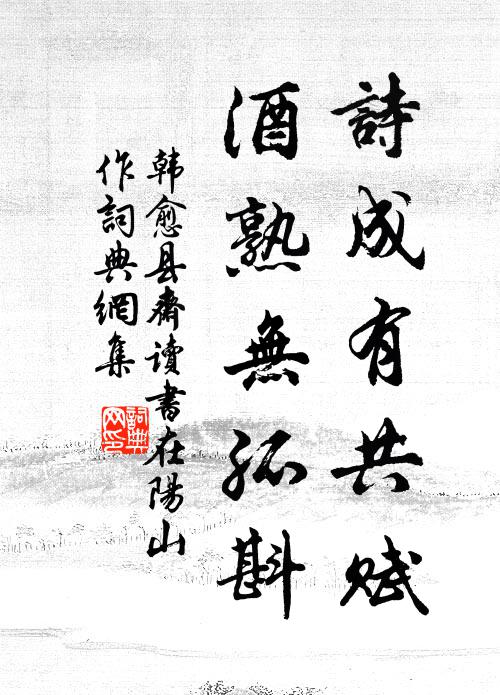 詩成有共賦
酒熟無孤斟
韩愈县齋讀書在陽山
作詞典網集
詞典网印